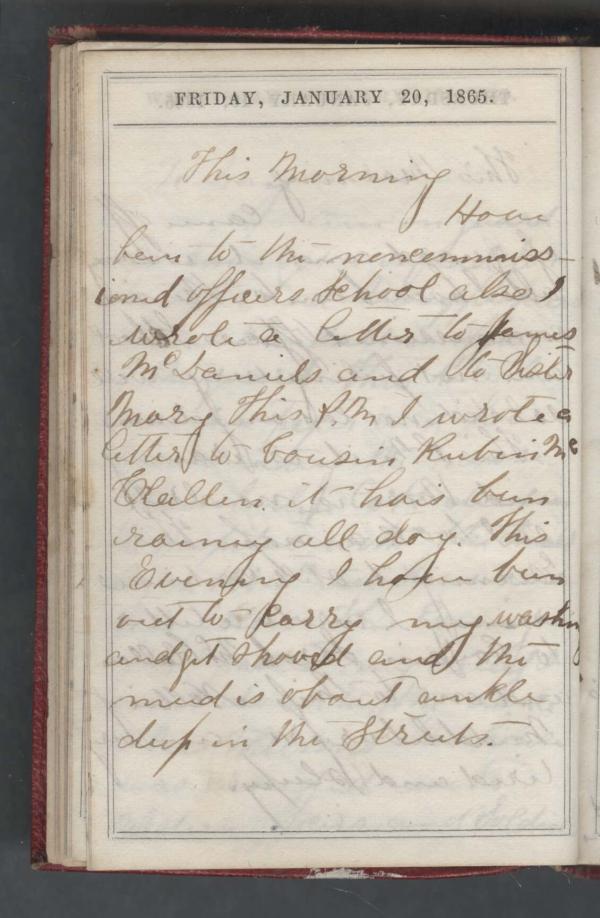 FRIDAY, JANUARY 20, 1865.
This Morning
Have
been to the noncommiss-
ioned officers School also I
wrote a letter to James
McDaniels and to Sister
Mary This P.M I wrote a
letter to Cousin Rubin Mc
Clallen. it hais bun
rainey all day. This
Evening I have bun
out to carry my washing
and get shoved and the
mud is about ankle
deep in the Streets.